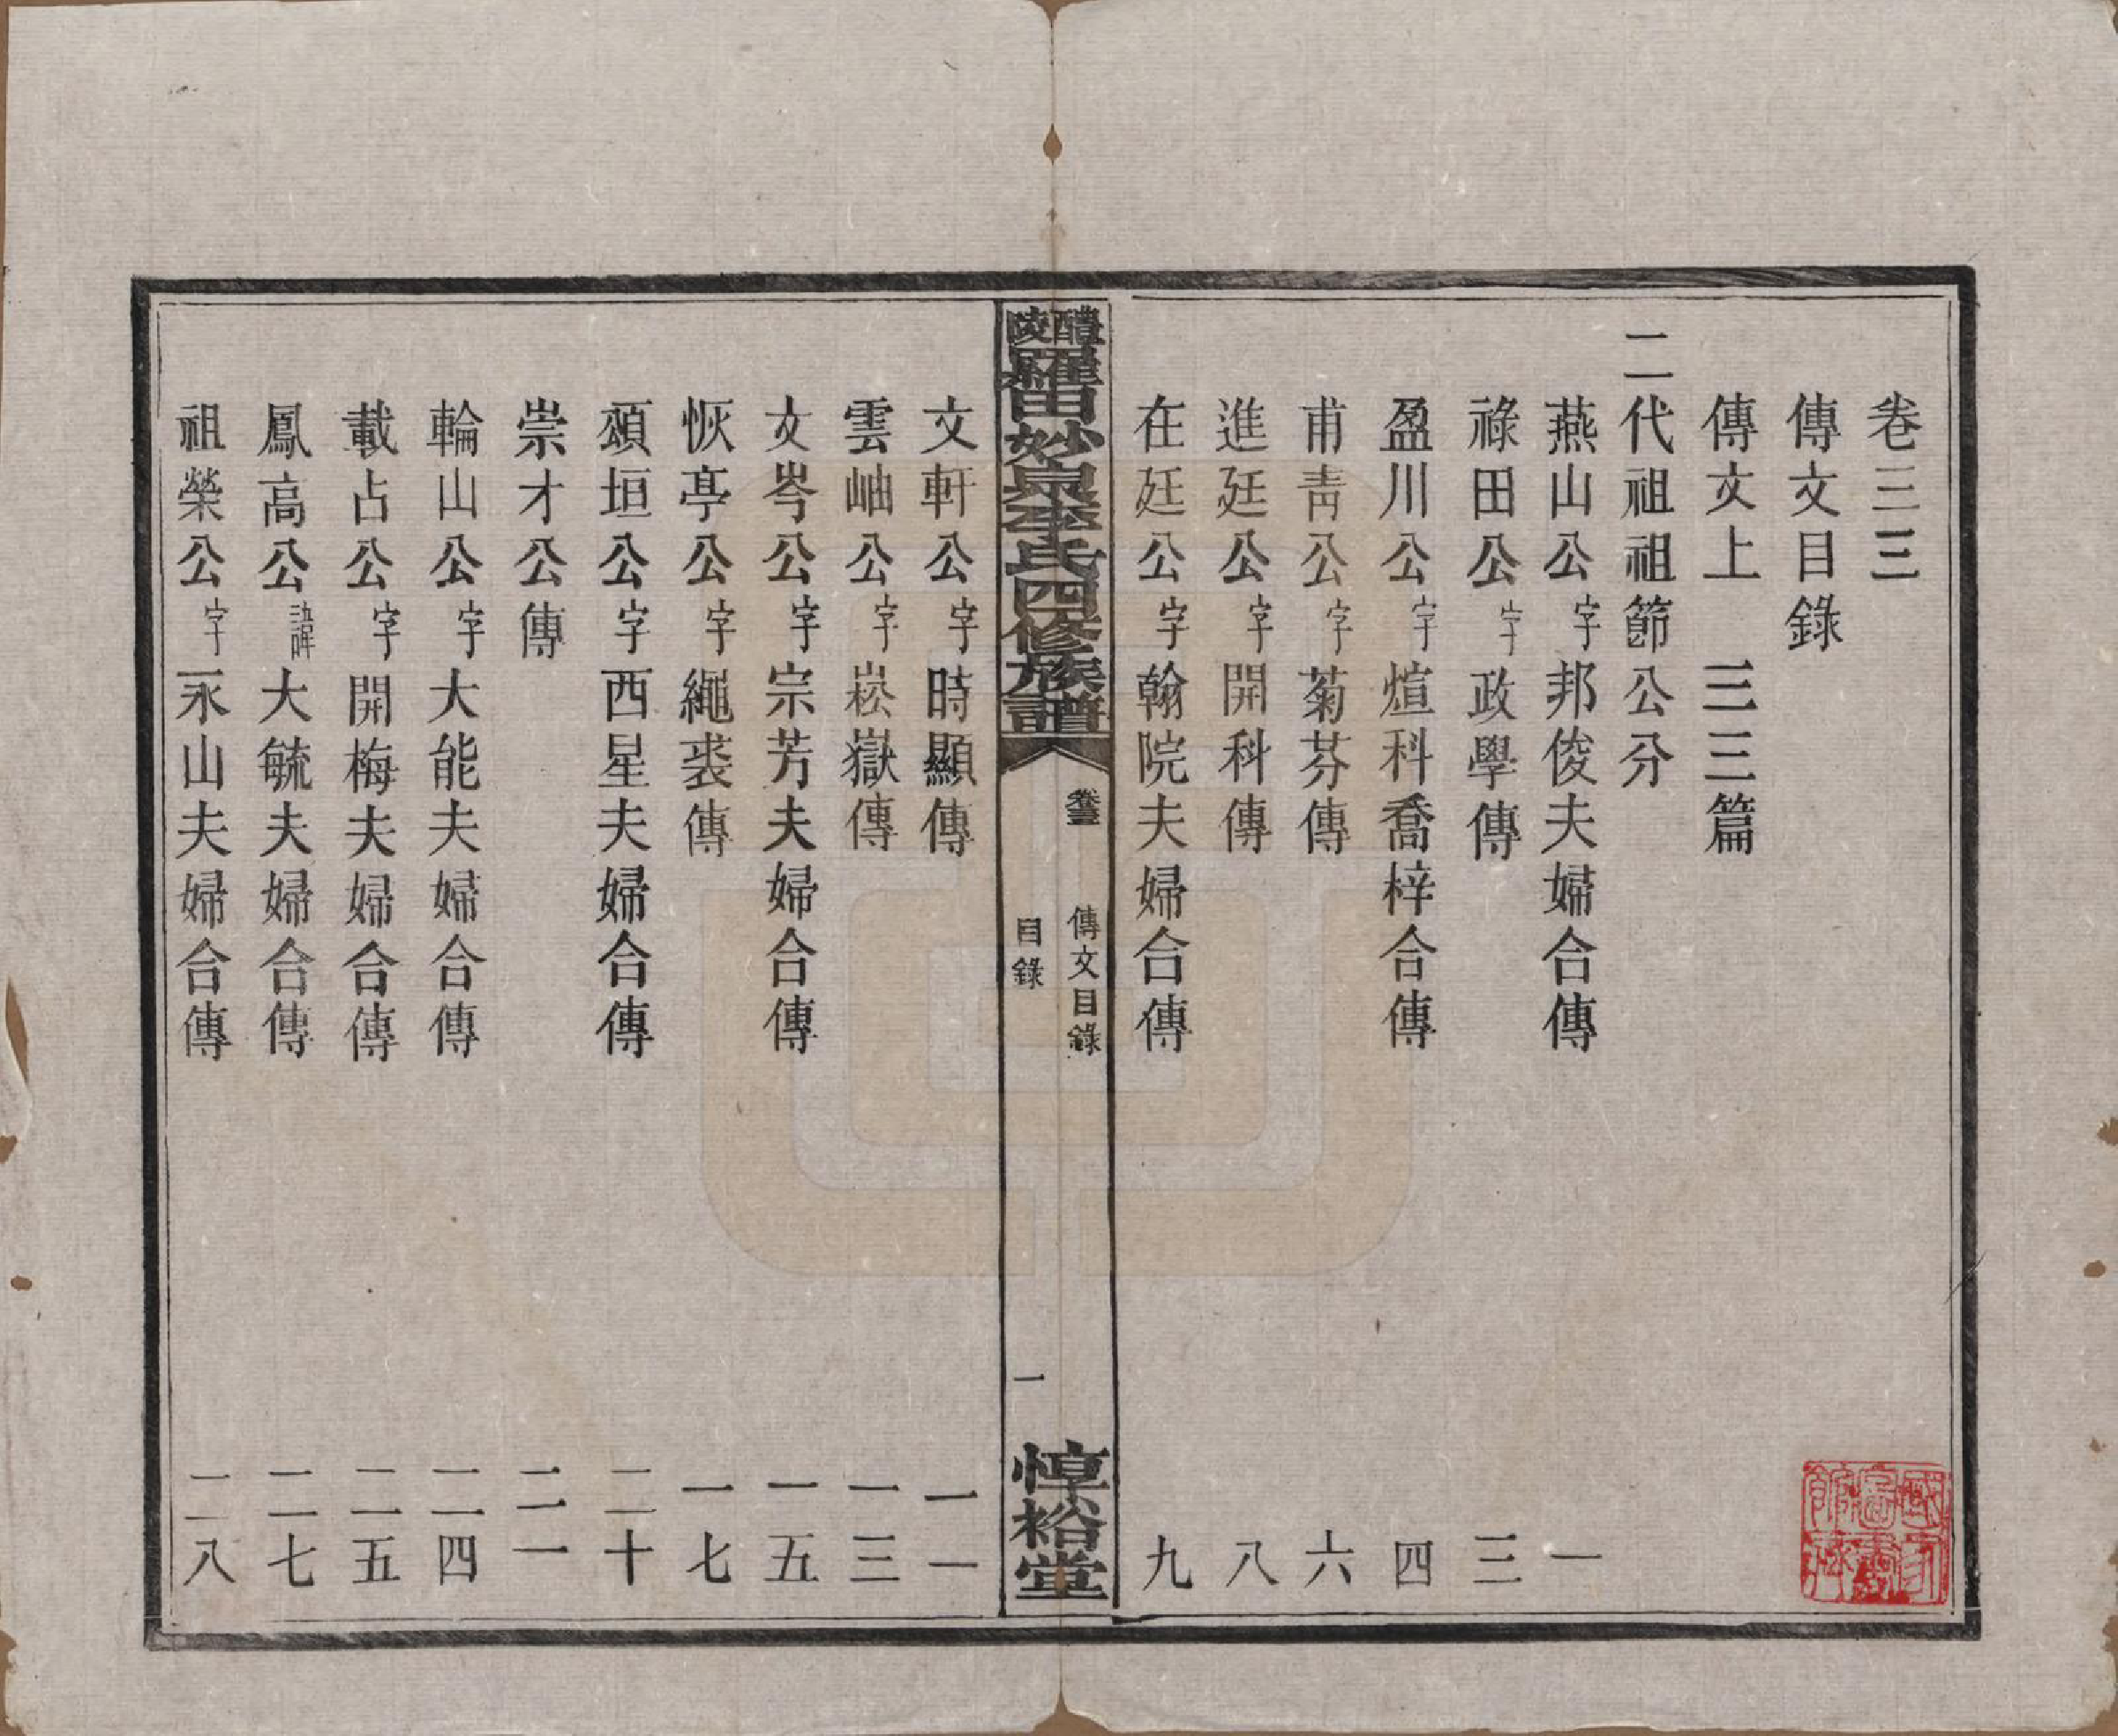 卷三三
傳文目錄
傳文上　三三篇
二代祖祖節公分
燕山公字邦俊夫婦合傳　一
祿田公字政學傳　三
盈川公字煊科喬梓合傳　四
甫靑公字菊芬傳　六
進廷公字開科傳　八
在廷公字翰院夫婦合傳　九
醴陵羅田妙泉李氏四修族譜
卷三三　傳文目錄
目錄　一
惇裕堂
文軒公字時顯傳　一一
雲岫公字崧嶽傳　一三
文岑公字宗芳夫婦合傳　一五
恢亭公字繩裘傳　一七
頌垣公字西星夫婦合傳　二十
崇才公傳　二一
輪山公字大能夫婦合傳　二四
載占公字開梅夫婦合傳　二五
鳳高公諱大毓夫婦合傳　二七
祖榮公字永山夫婦合傳　二八
國家圖書館藏